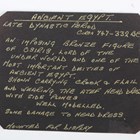 ANCIENT EGYPT.
LATE DYNASTIC PERIOD
Circa 747-332 BC
AN IMPOSING BRONZE FIGURE
OF OSIRIS, LORD OF THE
UNDER WORLD AND ONE OF THE
MOST IMPORTANT DEITIES OF
ANCIENT EGYPT.
SHOWN CARRYING CROOK & FLAIL
AND WEARING THE ATEF HEAD DRESS
WITH SIDE PLUMES
WELL MODELLED.
SOME DAMAGE TO HEAD DRESS
MOUNTED FOR DISPLAY